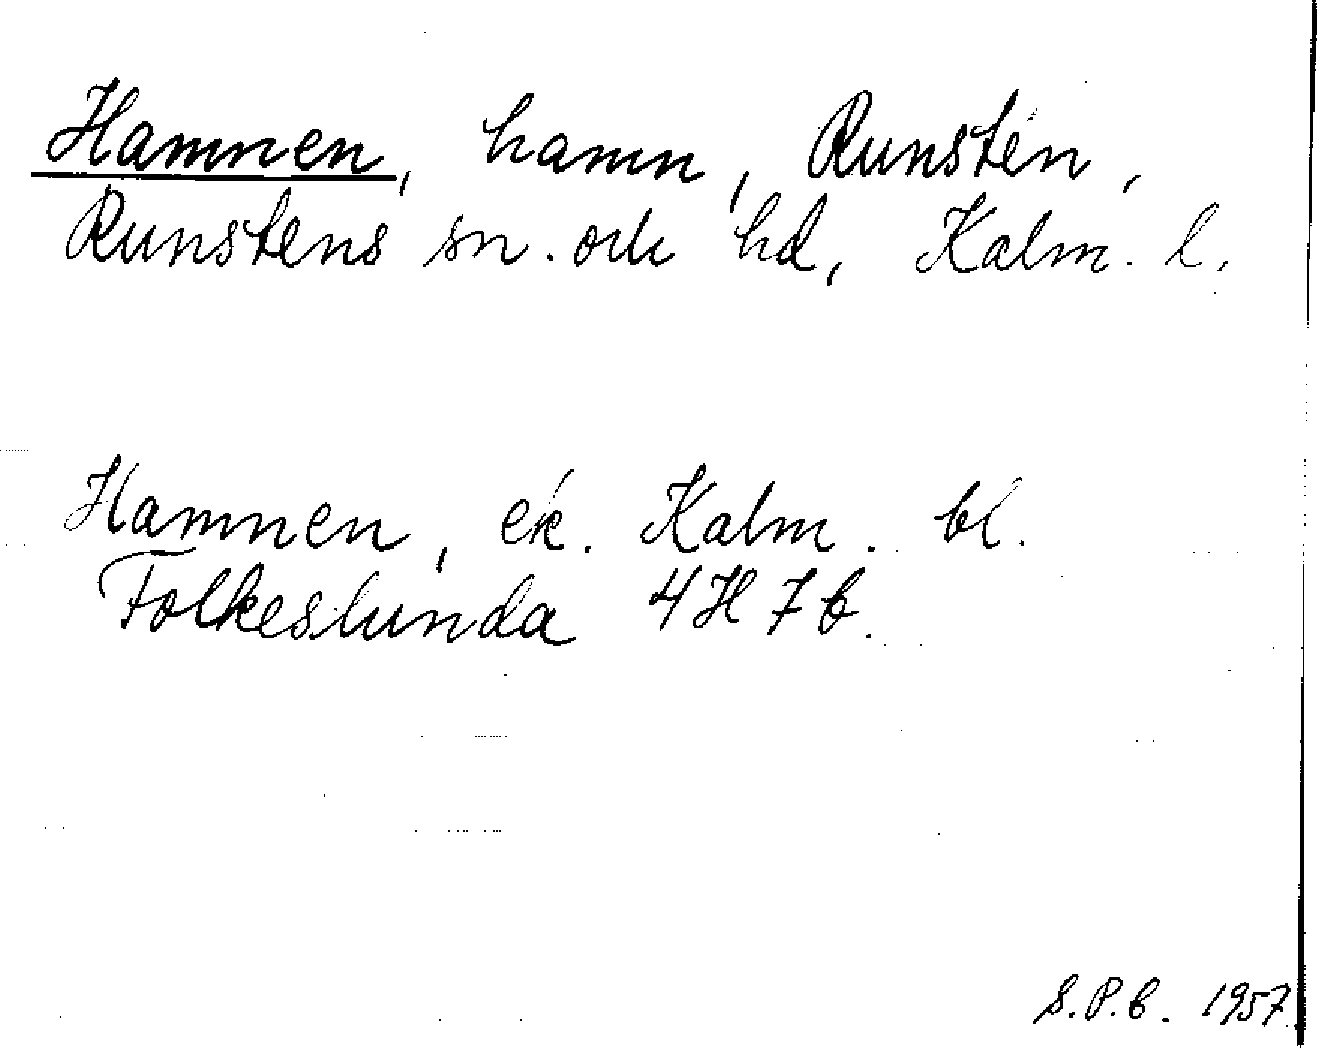 Hamnen, hamn, Runsten,
Runstens sn. och hd, Kalm. l.
Hamnen, ek. Kalm. bl.
Folkeslunda 4H7b.
S.P.B. 1957.